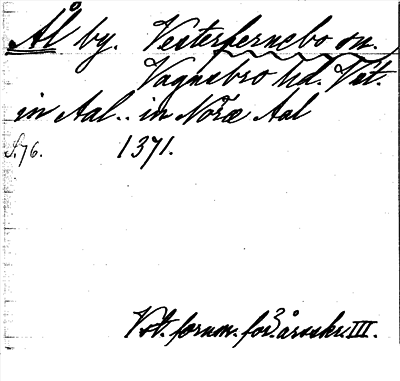 Ål by. Vesterfernebo sn.
Vagnsbro hd. Vst.
in Aal.. in Noræ Aal
S. 76. 1371.
Vst. fornm. för. årsskr. III.